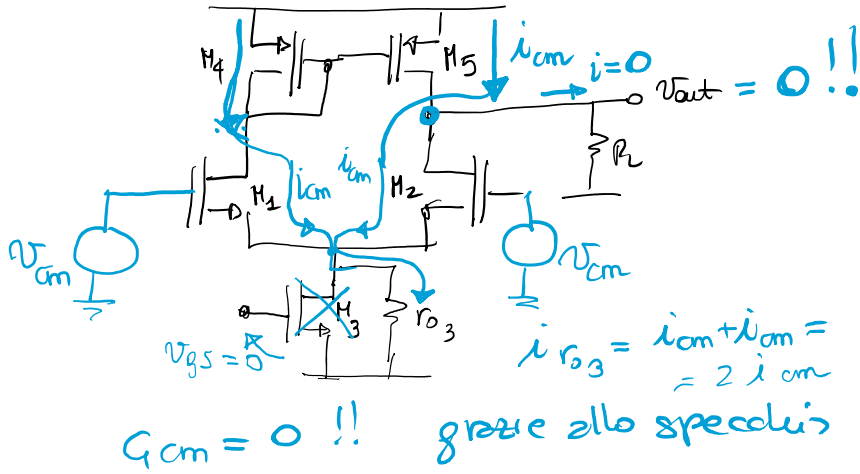 M4
M5
icm
i=0
Vout = 0 !!
RL
icm
icm
M1
M2
Vcm
Vcm
M3
ro3
Vgs = 0
i ro3 = icm + icm =
= 2 icm
Gcm = 0 !! grazie allo specchio